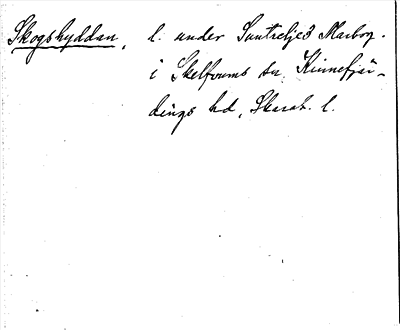 Skogshyddan, l. under Suntetje 3 Marbog.
i Skelfvums sn. Kinnefjär-
dings hd, Skarab. l.